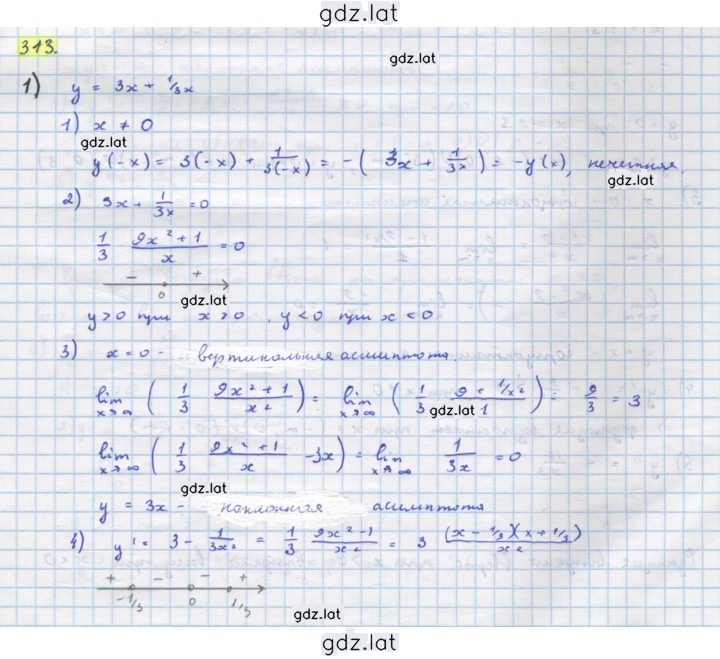 gdz.lat
313.
gdz.lat
1) y = 3x + 1/3x
1) x ≠ 0
gdz.lat
y(-x) = 3(-x) + 1/3(-x) = -(3x + 1/3x) = -y(x), нечетная.
gdz.lat
2) 3x + 1/3x = 0
1/3 9x² + 1/x = 0
- 0 +
gdz.lat
y > 0 при x > 0, y < 0 при x < 0
3) x = 0 - вертикальная асимптота.
lim x→∞ (1/3 9x² + 1/x²) = lim x→∞ (1/3 9 + 1/x²/1) = 9/3 = 3
gdz.lat
lim x→∞ (1/3 9x² + 1/x - 3x) = lim x→∞ 1/3x = 0
gdz.lat
y = 3x - наклонная асимптота
4) y' = 3 - 1/3x² = 1/3 9x² - 1/x² = 3 (x - 1/3)(x + 1/3)/x²
+ - - +
-1/3 0 1/3
gdz.lat
gdz.lat